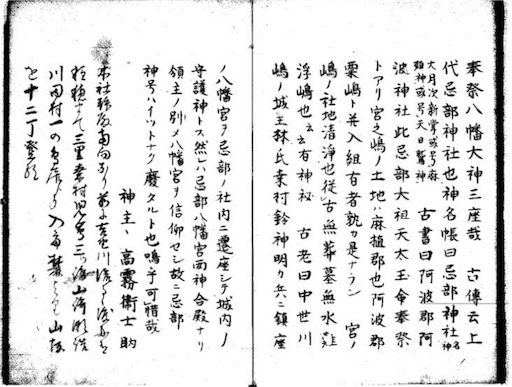 奉祭八幡大神三座哉 古傳云上
代忌部神社也神名帳曰忌部神社名神
大月次新嘗或号麻
殖神或号天日鷲神 古書曰阿波郡阿
波神社此忌部大祖天太玉命奉祭
トアリ宮之嶋ノ土地ハ麻植郡也阿波郡
粟嶋ト并入組有者孰カ是ナラン 宮ノ
嶋ノ社地清浄也従古無葬墓無水難
浮嶋也云云有神秘 古老曰中世川
嶋ノ城主林氏桒村鈴神明カ兵ニ鎮座
ノ八幡宮ヲ忌部ノ社内ニ遷座シテ城内ノ
守護神トス然レハ忌部八幡宮両神合殿ナリ
領主ノ別〆八幡宮ヲ信仰セシ故ニ忌部
神号ハイツトナク廢タルト也嗚乎可惜哉
神主、高霧衛士助
本社
三里桒村児島
川田村一の入山坂
を十二丁登